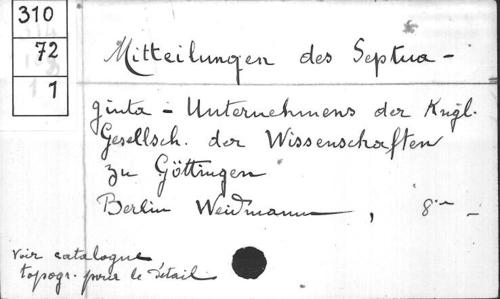 310
72
1
Mitteilungen des Septua-
ginta - Unternehmens der Kngl.
Gesellsch. der Wissenschaften
zu Göttingen
Berlin Weidmann , 8°
Voir catalogue
topogr. pour le détail